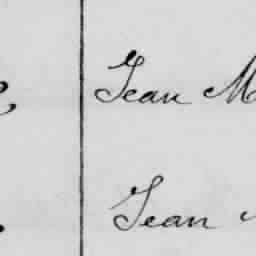 Jean M
Jean